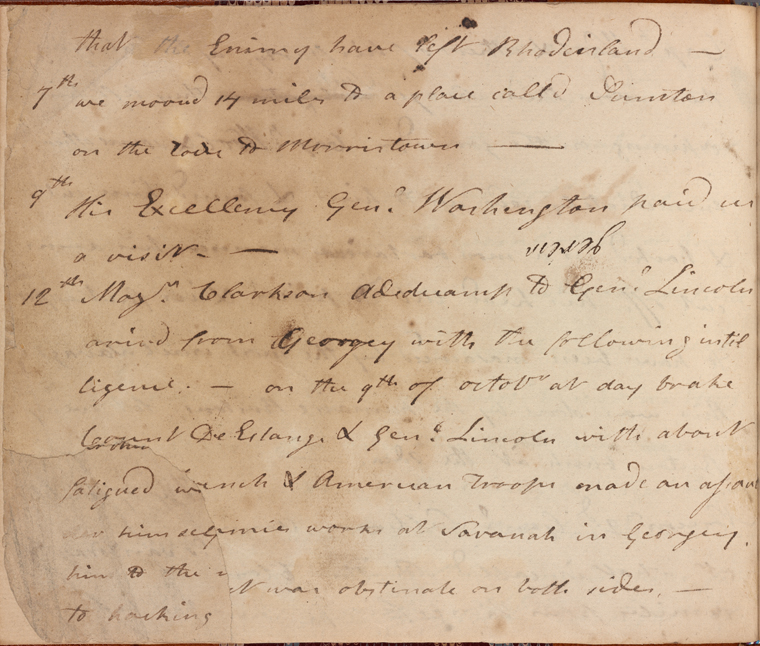 that the Enimy have left Rhodeisland —
7th we moovd 14 miles to a place calld
on the rode to Morristown —
9th His Excellency Genl. Washington paid us
a visit. —
12th Majr. Clarkson Adeducamp to Genl. Lincoln
arivd from Georgey with the following intil
ligence. — on the 9th of octobr at day brake
Count De Estange & Genl. Lincoln with about
fatigued French & American Troops made an assault
him works at Savanah in Georgey.
him to the was obstinate on both sides. —
to hacking